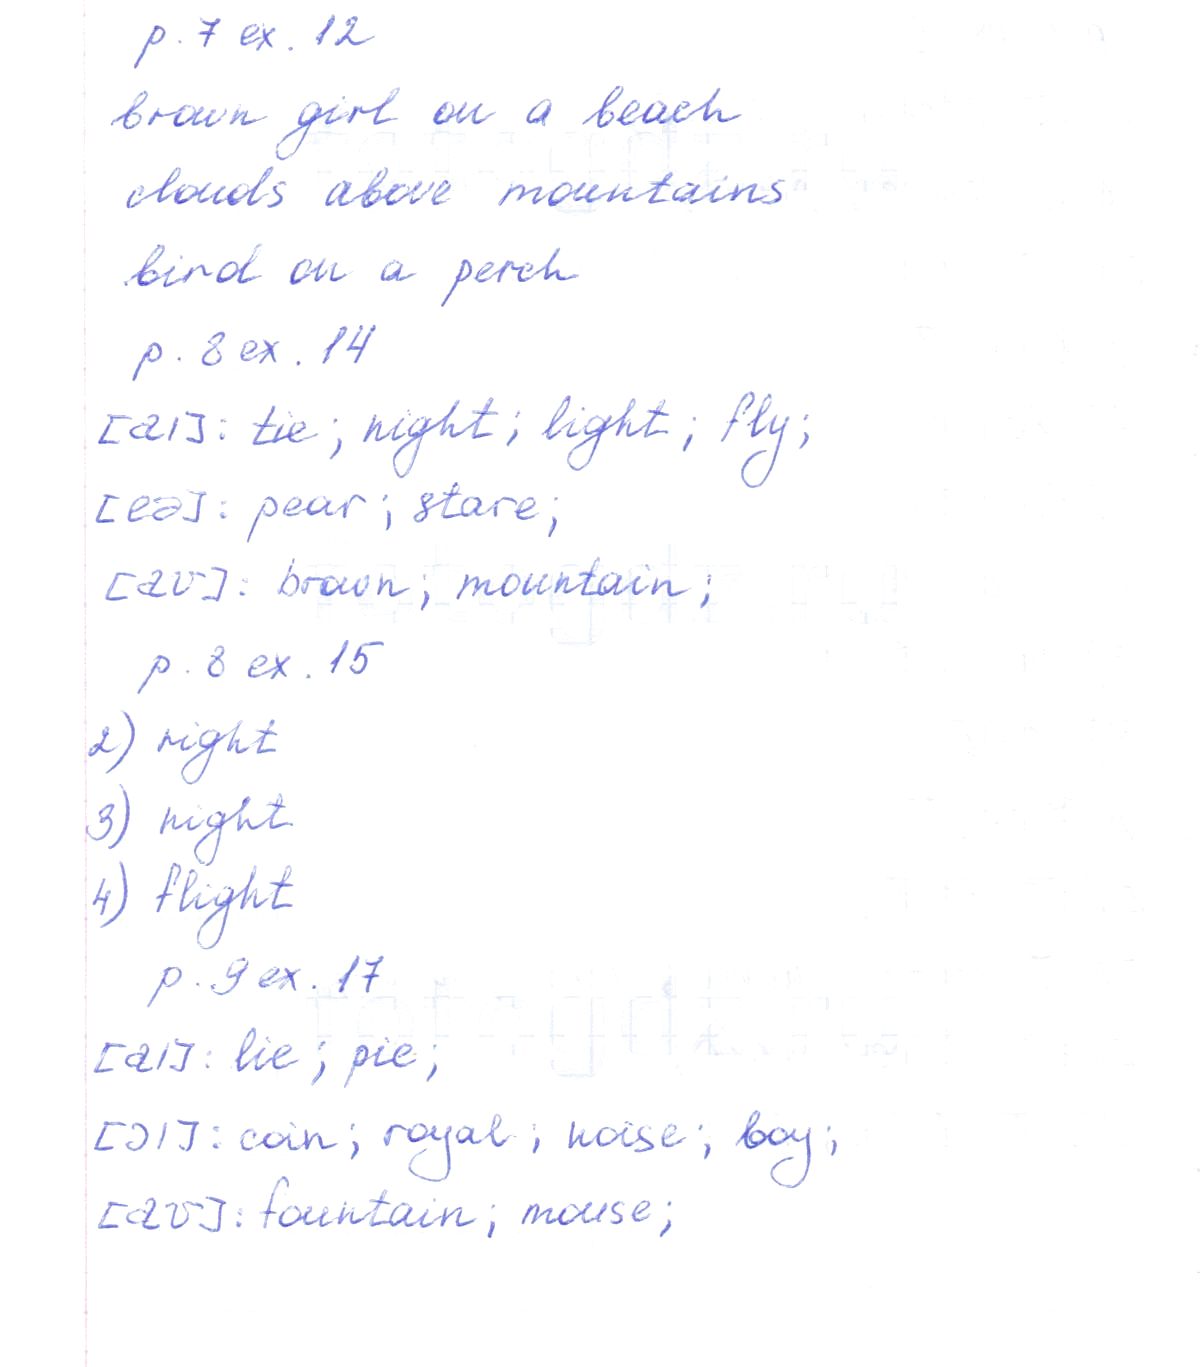 p. 7 ex. 12
brown girl on a beach
clouds above mountains
bird on a perch
p. 8 ex. 14
[aɪ]: tie; night; light; fly;
[eə]: pear; stare;
[aʊ]: brown; mountain;
p. 8 ex. 15
2) right
3) night
4) flight
p. 9 ex. 17
[aɪ]: lie; pie;
[ɔɪ]: coin; royal; noise; boy;
[aʊ]: fountain; mouse;